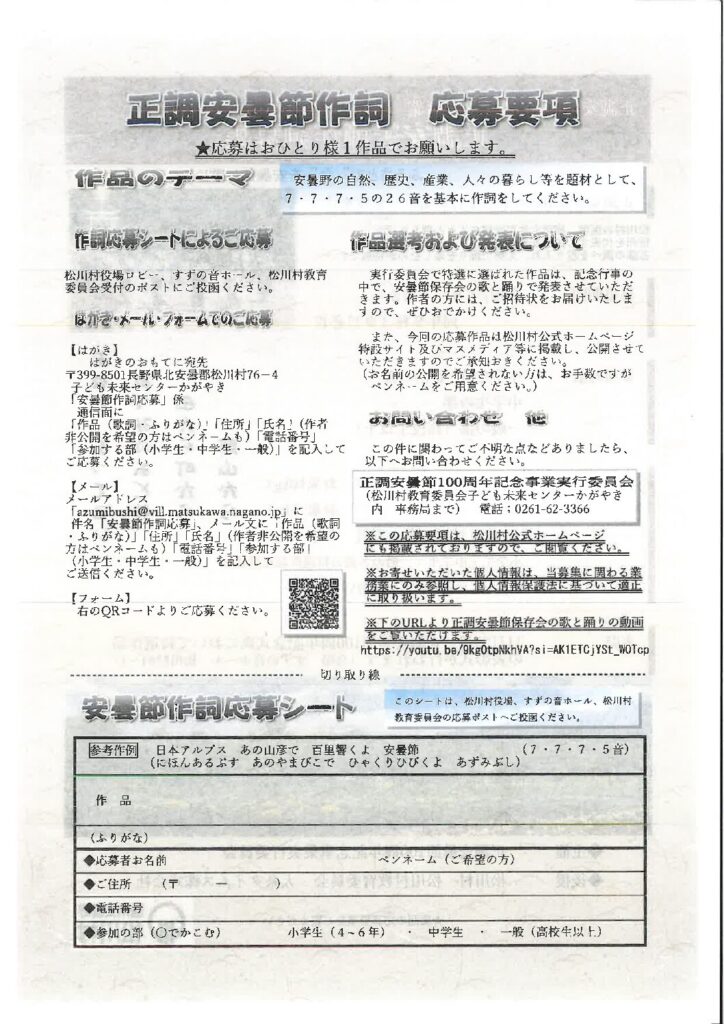 正調安曇節作詞　応募要項
★応募はおひとり様１作品でお願いします。
作品のテーマ
安曇野の自然、歴史、産業、人々の暮らし等を題材として、
７・７・７・５の２６音を基本に作詞をしてください。
作詞応募シートによるご応募
松川村役場ロビー、すずの音ホール、松川村教育
委員会受付のポストにご投函ください。
はがき・メール・フォームでのご応募
【はがき】
はがきのおもてに宛先
〒399-8501長野県北安曇郡松川村76－4
子ども未来センターかがやき
「安曇節作詞応募」係
通信面に
「作品（歌詞・ふりがな）」「住所」「氏名」（作者
非公開を希望の方はペンネームも）「電話番号」
「参加する部（小学生・中学生・一般）」を記入して
ご応募ください。
【メール】
メールアドレス
「azumibushi@vill.matsukawa.nagano.jp」に
件名「安曇節作詞応募」、メール文に「作品（歌詞
・ふりがな）」「住所」「氏名」（作者非公開を希望の
方はペンネームも）「電話番号」「参加する部」
（小学生・中学生・一般）」を記入して
ご送信ください。
【フォーム】
右のQRコードよりご応募ください。
作品選考および発表について
実行委員会で特選に選ばれた作品は、記念行事の
中で、安曇節保存会の歌と踊りで発表させていただ
きます。作者の方には、ご招待状をお届けいたしま
すので、ぜひおでかけください。
また、今回の応募作品は松川村公式ホームページ
特設サイト及びマスメディア等に掲載し、公開させて
いただきますのでご承知おきください。
（お名前の公開を希望されない方は、お手数ですが
ペンネームをご用意ください。）
お問い合わせ　他
この件に関わってご不明な点などありましたら、
以下へお問い合わせください。
正調安曇節100周年記念事業実行委員会
（松川村教育委員会子ども未来センターかがやき
内　事務局まで）　電話；0261-62-3366
※この応募要項は、松川村公式ホームページ
にも掲載されておりますので、ご閲覧ください。
※お寄せいただいた個人情報は、当募集に関わる業
務業にのみ参照し、個人情報保護法に基づいて適正
に取り扱います。
※下のURLより正調安曇節保存会の歌と踊りの動画
をご覧いただけます。
https://youtu.be/9kgOtpNkhVA?si=AK1ETCjYSt_WOTcp
切り取り線
安曇節作詞応募シート
このシートは、松川村役場、すずの音ホール、松川村
教育委員会の応募ポストへご投函ください。
参考作例　日本アルプス　あの山彦で　百里響くよ　安曇節　（７・７・７・５音）
（にほんあるぷす　あのやまびこで　ひゃくりひびくよ　あずみぶし）
作　品
（ふりがな）
◆応募者お名前　ペンネーム（ご希望の方）
◆ご住所　（〒　　―　　）
◆電話番号
◆参加の部（○でかこむ）　小学生（４～６年）　・　中学生　・　一般（高校生以上）